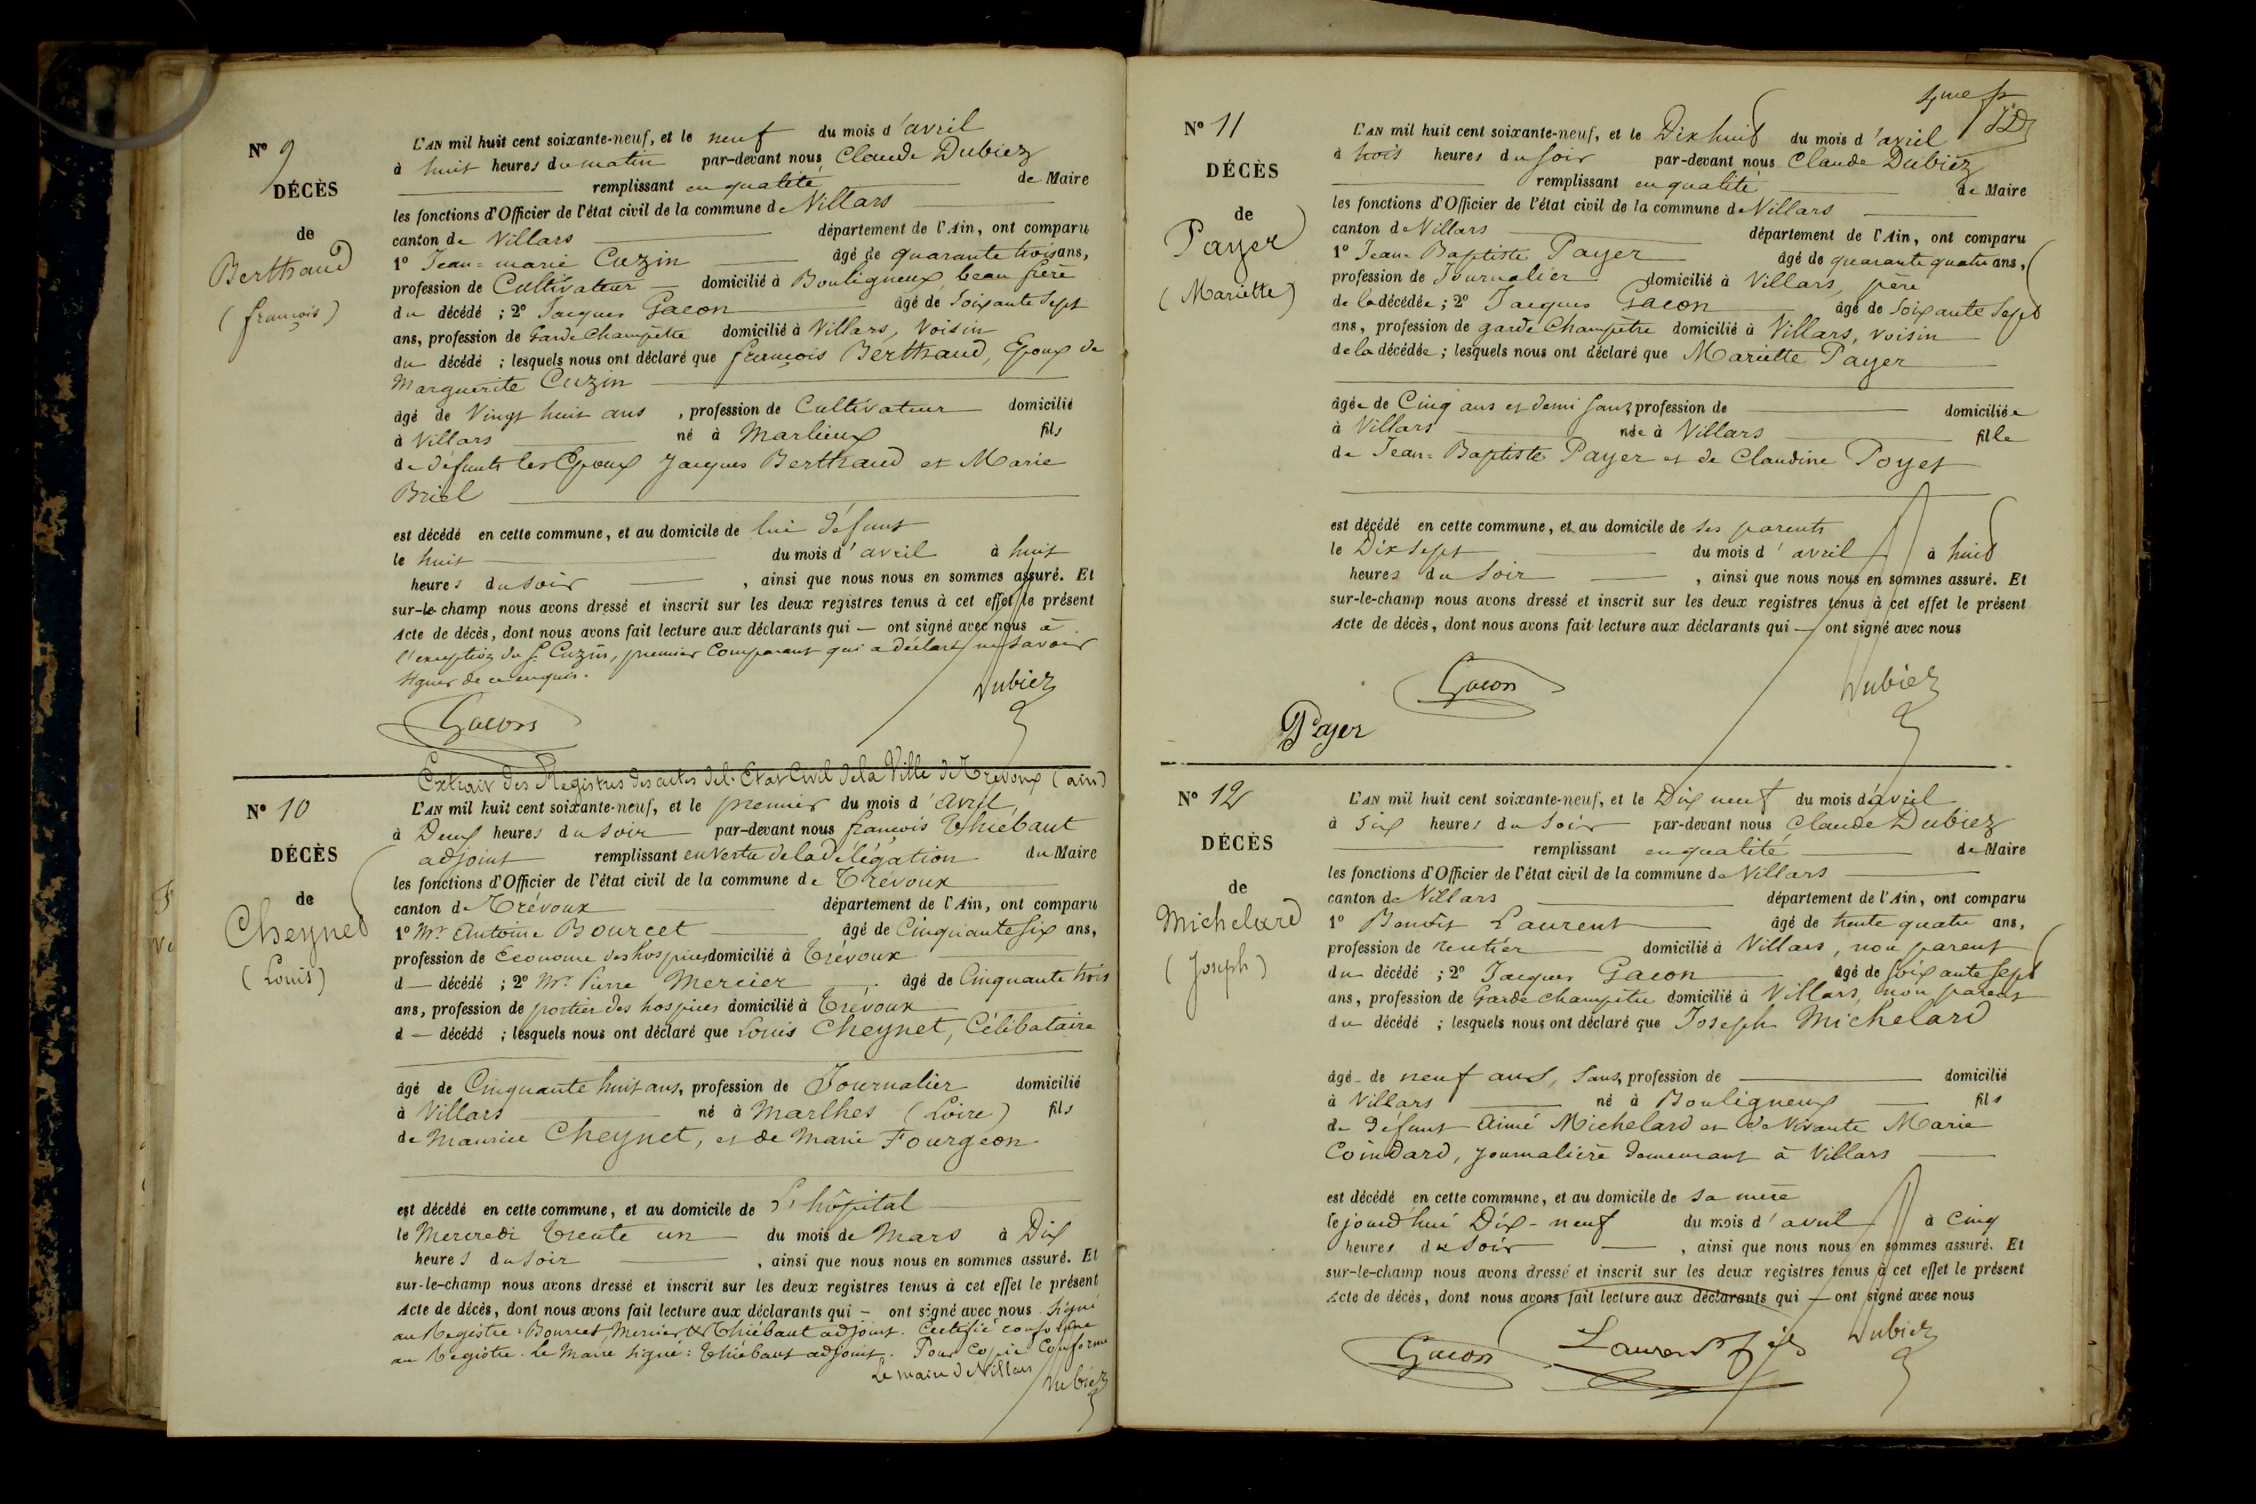 Nº 9
DÉCÈS
de
Berthaud
(françois)
L'AN mil huit cent soixante-neuf, et le neuf du mois d'avril
à huit heures du matin par-devant nous Claude Dubiez
remplissant en qualité de Maire
les fonctions d'Officier de l'état civil de la commune de Villars
canton de Villars département de l'Ain, ont comparu
1º Jean=marie Cuzin âgé de quarante trois ans,
profession de Cultivateur domicilié à Bouligneux, beau frère
du décédé ; 2º Jacques Gacon âgé de Soixante Sept
ans, profession de Garde Champêtre domicilié à Villars, Voisin
du décédé ; lesquels nous ont déclaré que françois Berthaud, Epoux de
Marguerite Cuzin
âgé de Vingt huit ans, profession de Cultivateur domicilié
à Villars né à Marlieux fils
de défunts les Epoux Jacques Berthaud et Marie
Briel
est décédé en cette commune, et au domicile de lui défunt
le huit du mois d'avril à huit
heures du soir, ainsi que nous nous en sommes assuré. Et
sur-le-champ nous avons dressé et inscrit sur les deux registres tenus à cet effet le présent
Acte de décès, dont nous avons fait lecture aux déclarants qui — ont signé avec nous à
l'exception du S. Cuzin, premier Comparant qui a déclaré ne savoir
signer de ce enquis.
Dubiez
Gacon
Nº 10
DÉCÈS
de
Cheynet
(Louis)
Extrait des Registres des actes de l'Etat Civil de la Ville de Trévoux (ain)
L'AN mil huit cent soixante-neuf, et le premier du mois d'avril,
à Deux heures du soir par-devant nous françois Thiébaut
adjoint remplissant en vertu de la délégation du Maire
les fonctions d'Officier de l'état civil de la commune de Trévoux
canton de Trévoux département de l'Ain, ont comparu
1º Mr Antoine Bourcet âgé de Cinquante six ans,
profession de Econome des hospices domicilié à Trévoux
d — décédé ; 2º Mr Pierre Mercier âgé de Cinquante trois
ans, profession de portier des hospices domicilié à Trévoux
d — décédé ; lesquels nous ont déclaré que Louis Cheynet, Célibataire
âgé de Cinquante huit ans, profession de Journalier domicilié
à Villars né à Marlhes (Loire) fils
de Maurice Cheynet, et de Marie Fourgeon
est décédé en cette commune, et au domicile de L'hôpital
le Mercredi trente un du mois de Mars à Dix
heures du soir, ainsi que nous nous en sommes assuré. Et
sur-le-champ nous avons dressé et inscrit sur les deux registres tenus à cet effet le présent
Acte de décès, dont nous avons fait lecture aux déclarants qui — ont signé avec nous signé
au Registre : Bourcet, Mercier & Thiébaut adjoint. Certifié conforme
au Registre. Le Maire signé : Thiébaut adjoint. Pour Copie Conforme
Le maire de Villars
Dubiez
4me f
Nº 11
DÉCÈS
de
Payer
(Mariette)
L'AN mil huit cent soixante-neuf, et le Dix huit du mois d'avril
à trois heures du soir par-devant nous Claude Dubiez
remplissant en qualité de Maire
les fonctions d'Officier de l'état civil de la commune de Villars
canton de Villars département de l'Ain, ont comparu
1º Jean Baptiste Payer âgé de quarante quatre ans,
profession de Journalier domicilié à Villars, père
de la décédée ; 2º Jacques Gacon âgé de Soixante Sept
ans, profession de garde Champêtre domicilié à Villars, voisin
de la décédée ; lesquels nous ont déclaré que Mariette Payer
âgée de Cinq ans et demi sans profession de domiciliée
à Villars née à Villars fille
de Jean=Baptiste Payer et de Claudine Poyet
est décédé en cette commune, et au domicile de ses parents
le Dix sept du mois d'avril à huit
heures du soir, ainsi que nous nous en sommes assuré. Et
sur-le-champ nous avons dressé et inscrit sur les deux registres tenus à cet effet le présent
Acte de décès, dont nous avons fait lecture aux déclarants qui — ont signé avec nous
Gacon
Dubiez
Payer
Nº 12
DÉCÈS
de
Michelard
(Joseph)
L'AN mil huit cent soixante-neuf, et le Dix neuf du mois d'avril
à six heures du soir par-devant nous Claude Dubiez
remplissant en qualité de Maire
les fonctions d'Officier de l'état civil de la commune de Villars
canton de Villars département de l'Ain, ont comparu
1º Benoît Laurent âgé de trente quatre ans,
profession de rentier domicilié à Villars, non parent
du décédé ; 2º Jacques Gacon âgé de soixante sept
ans, profession de Garde champêtre domicilié à Villars, non parent
du décédé ; lesquels nous ont déclaré que Joseph Michelard
âgé de neuf ans, sans profession de domicilié
à Villars né à Bouligneux fils
de défunt Aimé Michelard et de Vivante Marie
Coindard, journalière demeurant à Villars
est décédé en cette commune, et au domicile de sa mère
le jourd'hui Dix-neuf du mois d'avril à cinq
heures du soir, ainsi que nous nous en sommes assuré. Et
sur-le-champ nous avons dressé et inscrit sur les deux registres tenus à cet effet le présent
Acte de décès, dont nous avons fait lecture aux déclarants qui — ont signé avec nous
Gacon
Laurent fils
Dubiez